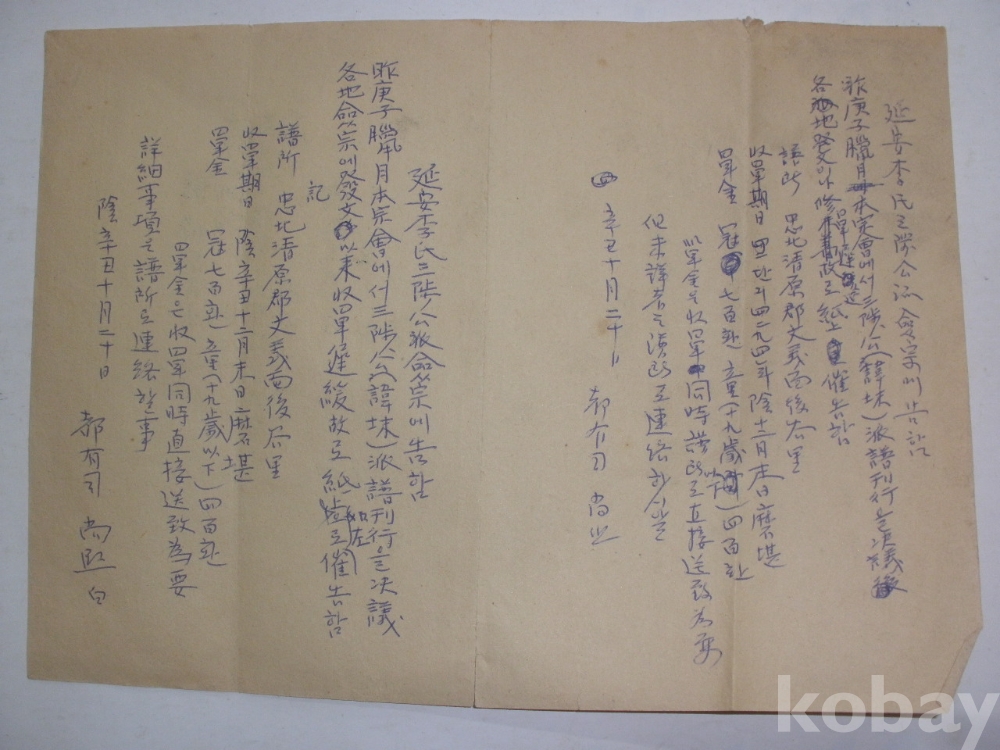 延安李氏三陟公派僉宗에告함
昨庚子臘月本宗會에서三陟公(諱堜)派譜刊行을決議
各地 로紙 催告함
譜所 忠北清原郡文義面後谷里
收單期日 단기四二九四年陰十二月末日磨不堪
單金 冠七百환 童(十九歲以下)四百환
單金은收單同時譜所로直接送致為要
但未詳者는譜所로連絡하시압
辛丑十月二十日 都有司 尙熙
延安李氏三陟公派僉宗에告함
昨庚子臘月本宗會에서三陟公(諱堜)派譜刊行을決議
各地僉宗에發文以來收單遲緩故로紙 로如左催告함
記
譜所 忠北清原郡文義面後谷里
收單期日 陰辛丑十二月末日磨不堪
單金 冠七百환 童(十九歲以下)四百환
單金은收單同時直接送致為要
詳細事項은譜所로連絡할事
陰辛丑十月二十日
都有司 尙熙 白
kobay